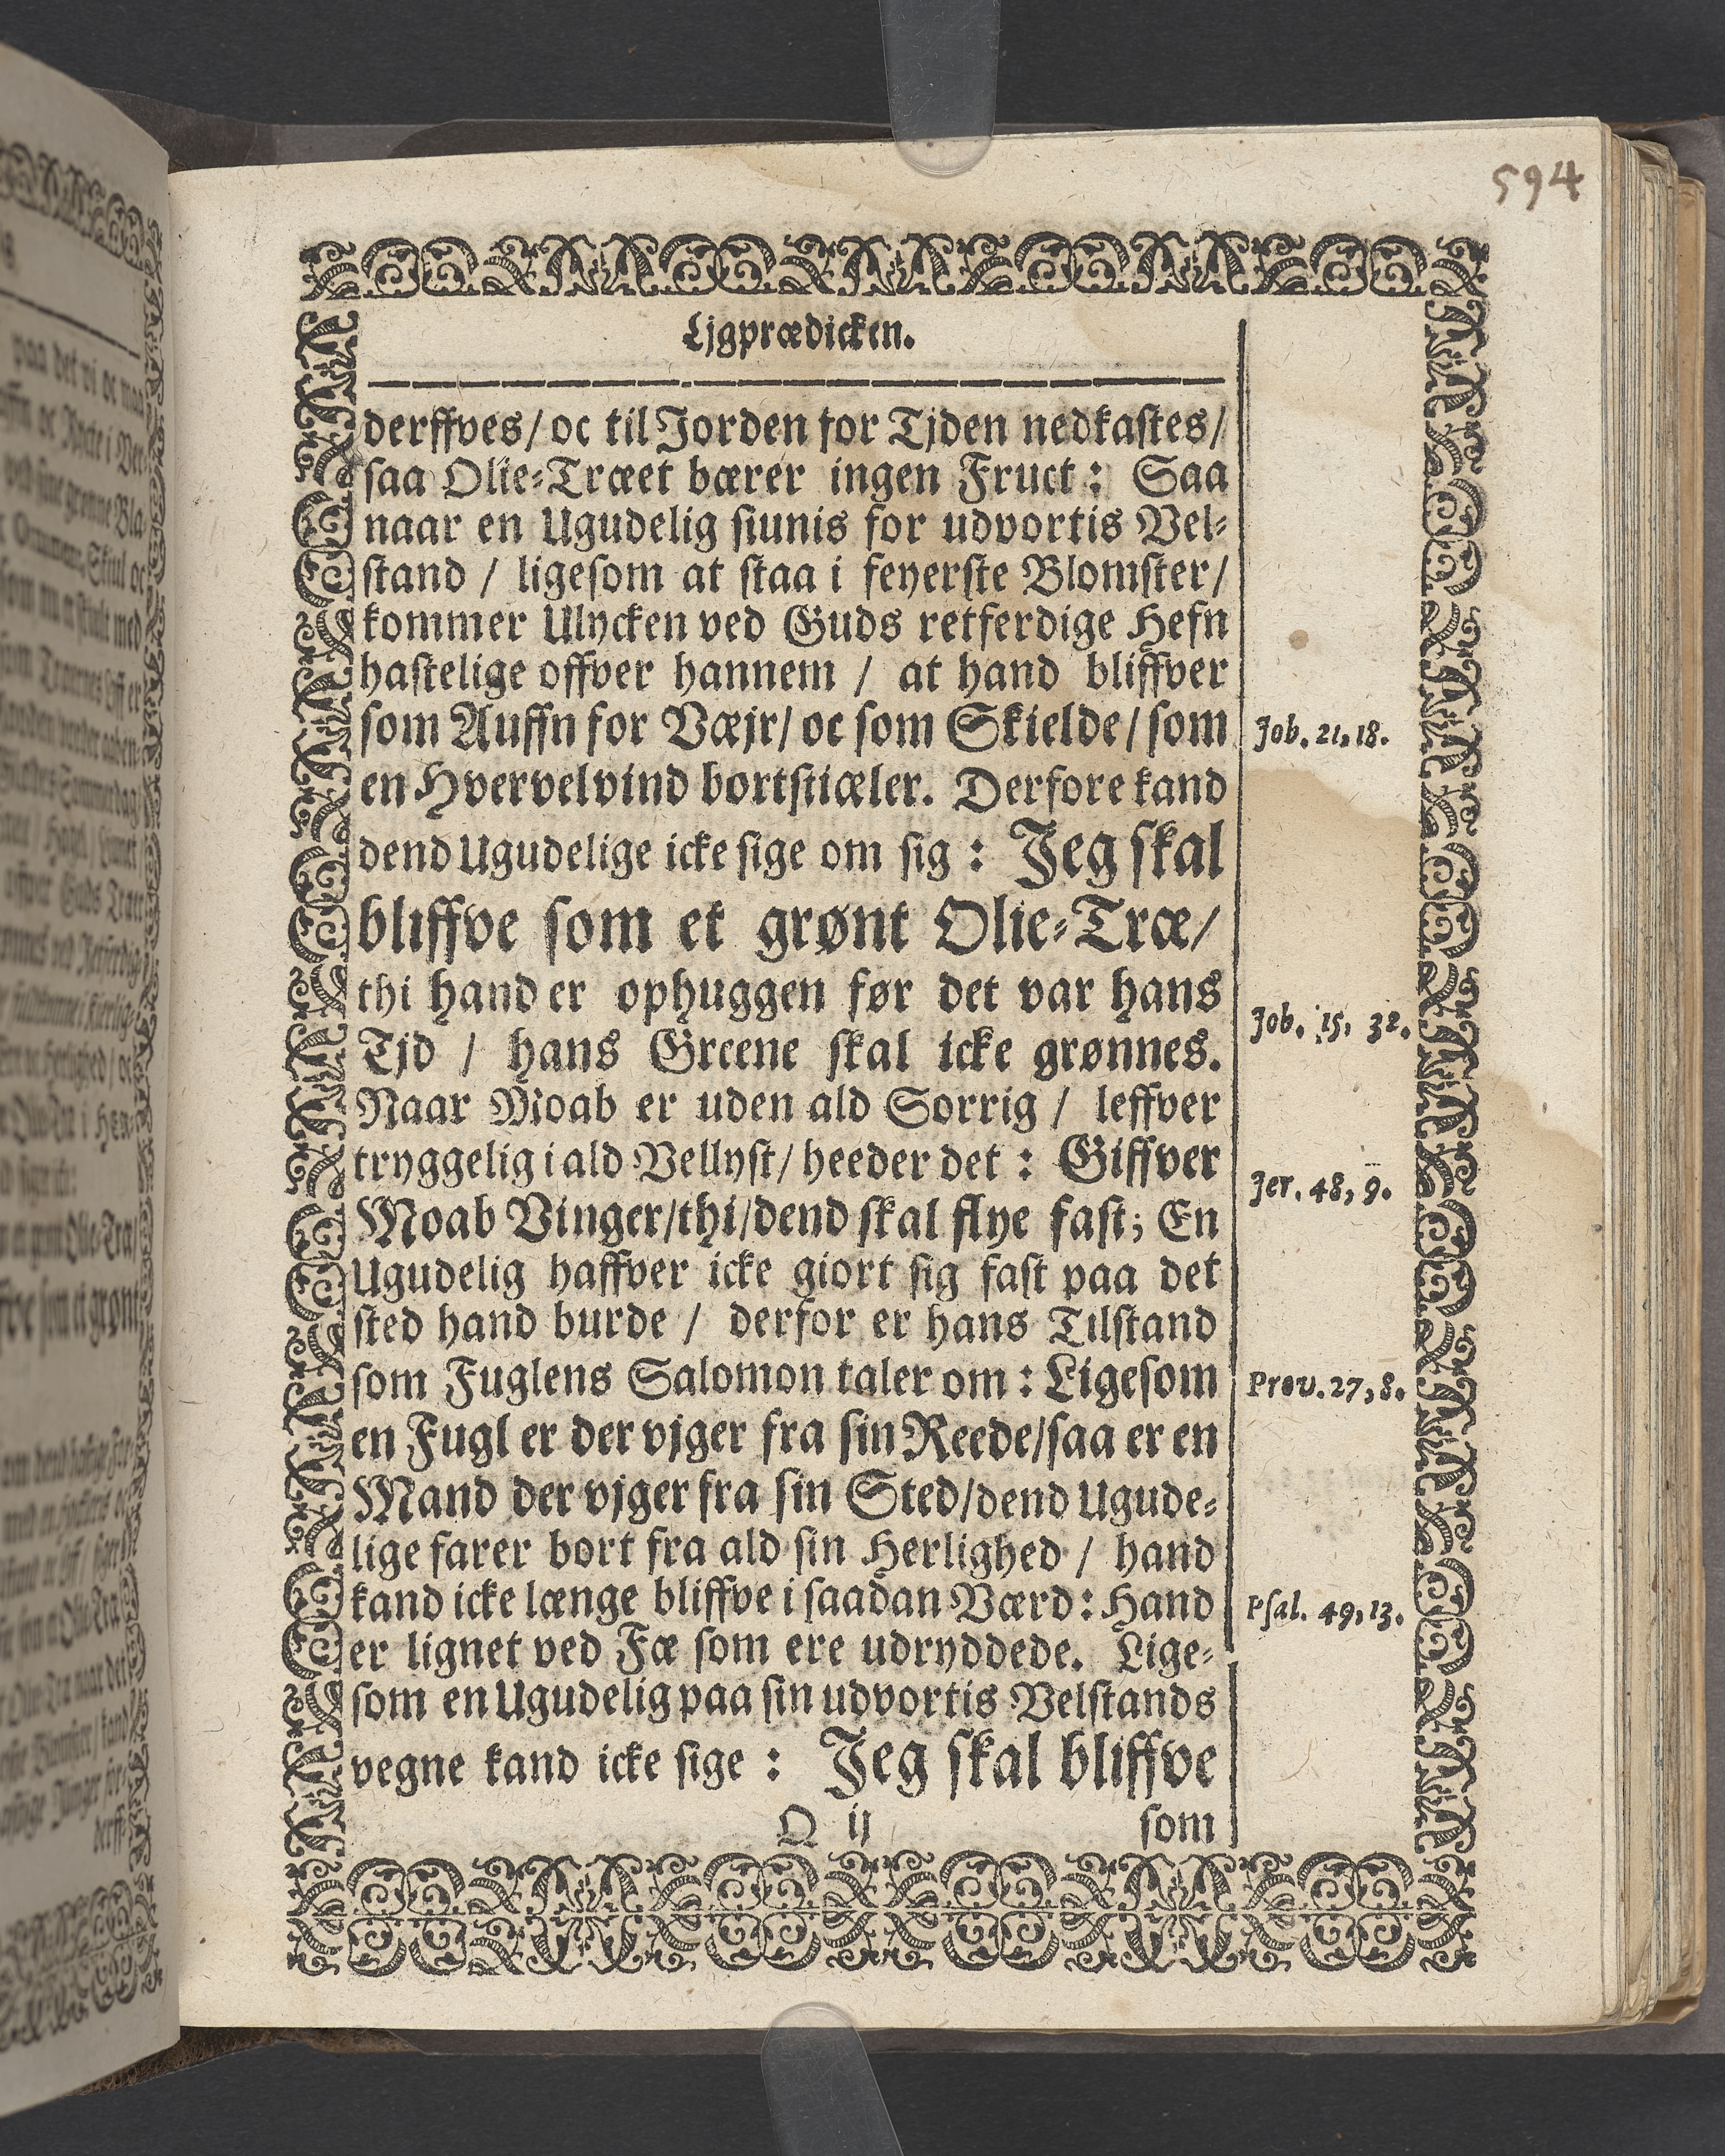 594
Ljgprædicken.
derffves/ oc til Jorden for Tjden nedkastes/
saa Olie-Træet bærer ingen Fruct: Saa
naar en Ugudelig siunis for udvortis Vel-
stand / ligesom at staa i feyerste Blomster/
kommer Ulycken ved Guds retferdige Hefn
hastelige offver hannem / at hand bliffver
som Auffn for Væjr/ oc som Skielde/ som
Job. 21, 18.
en Hvervelvind bortstiæler. Derfore kand
dend Ugudelige icke sige om sig: Jeg skal
bliffve som et grønt Olie-Træ/
thi hand er ophuggen før det var hans
Job. 15, 32.
Tjd / hans Greene skal icke grønnes.
Naar Moab er uden ald Sorrig / leffver
tryggelig i ald Vellyst/ heeder det: Giffver
Jer. 48, 9.
Moab Vinger/thi/dend skal flye fast; En
Ugudelig haffver icke giort sig fast paa det
sted hand burde / derfor er hans Tilstand
som Fuglens Salomon taler om: Ligesom
Prov. 27, 8.
en Fugl er der vjger fra sin Reede/saa er en
Mand der vjger fra sin Sted/dend Ugude-
lige farer bort fra ald sin Herlighed / hand
kand icke længe bliffve i saadan Værd: Hand
Psal. 49, 13.
er lignet ved Fæ som ere udryddede. Lige-
som en Ugudelig paa sin udvortis Velstands
vegne kand icke sige: Jeg skal bliffve
Q ij
som